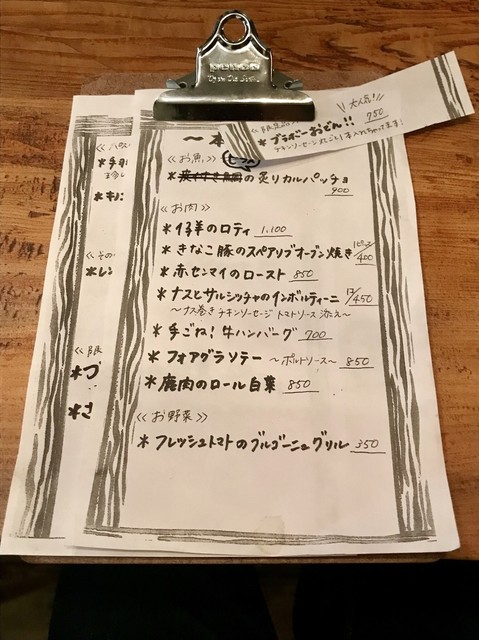 \\大人気!!//
*ブラボーおでん!! 750
チキンソーセージ丸ごと1本入れちゃってます!
~本
≪お魚≫
*の炙りカルパッチョ
900
≪お肉≫
*仔羊のロティ 1,100
*きなこ豚のスペアリブオーブン焼き 1ピース/400
*赤センマイのロースト 850
*ナスとサルシッチャのインボルティーニ 1ケ/450
~ナス巻きチキンソーセージ トマトソース添え~
*手ごね!牛ハンバーグ 700
*フォアグラソテー ~ポルトソース~ 850
*鹿肉のロール白菜 850
≪お野菜≫
*フレッシュトマトのブルゴーニュグリル 350